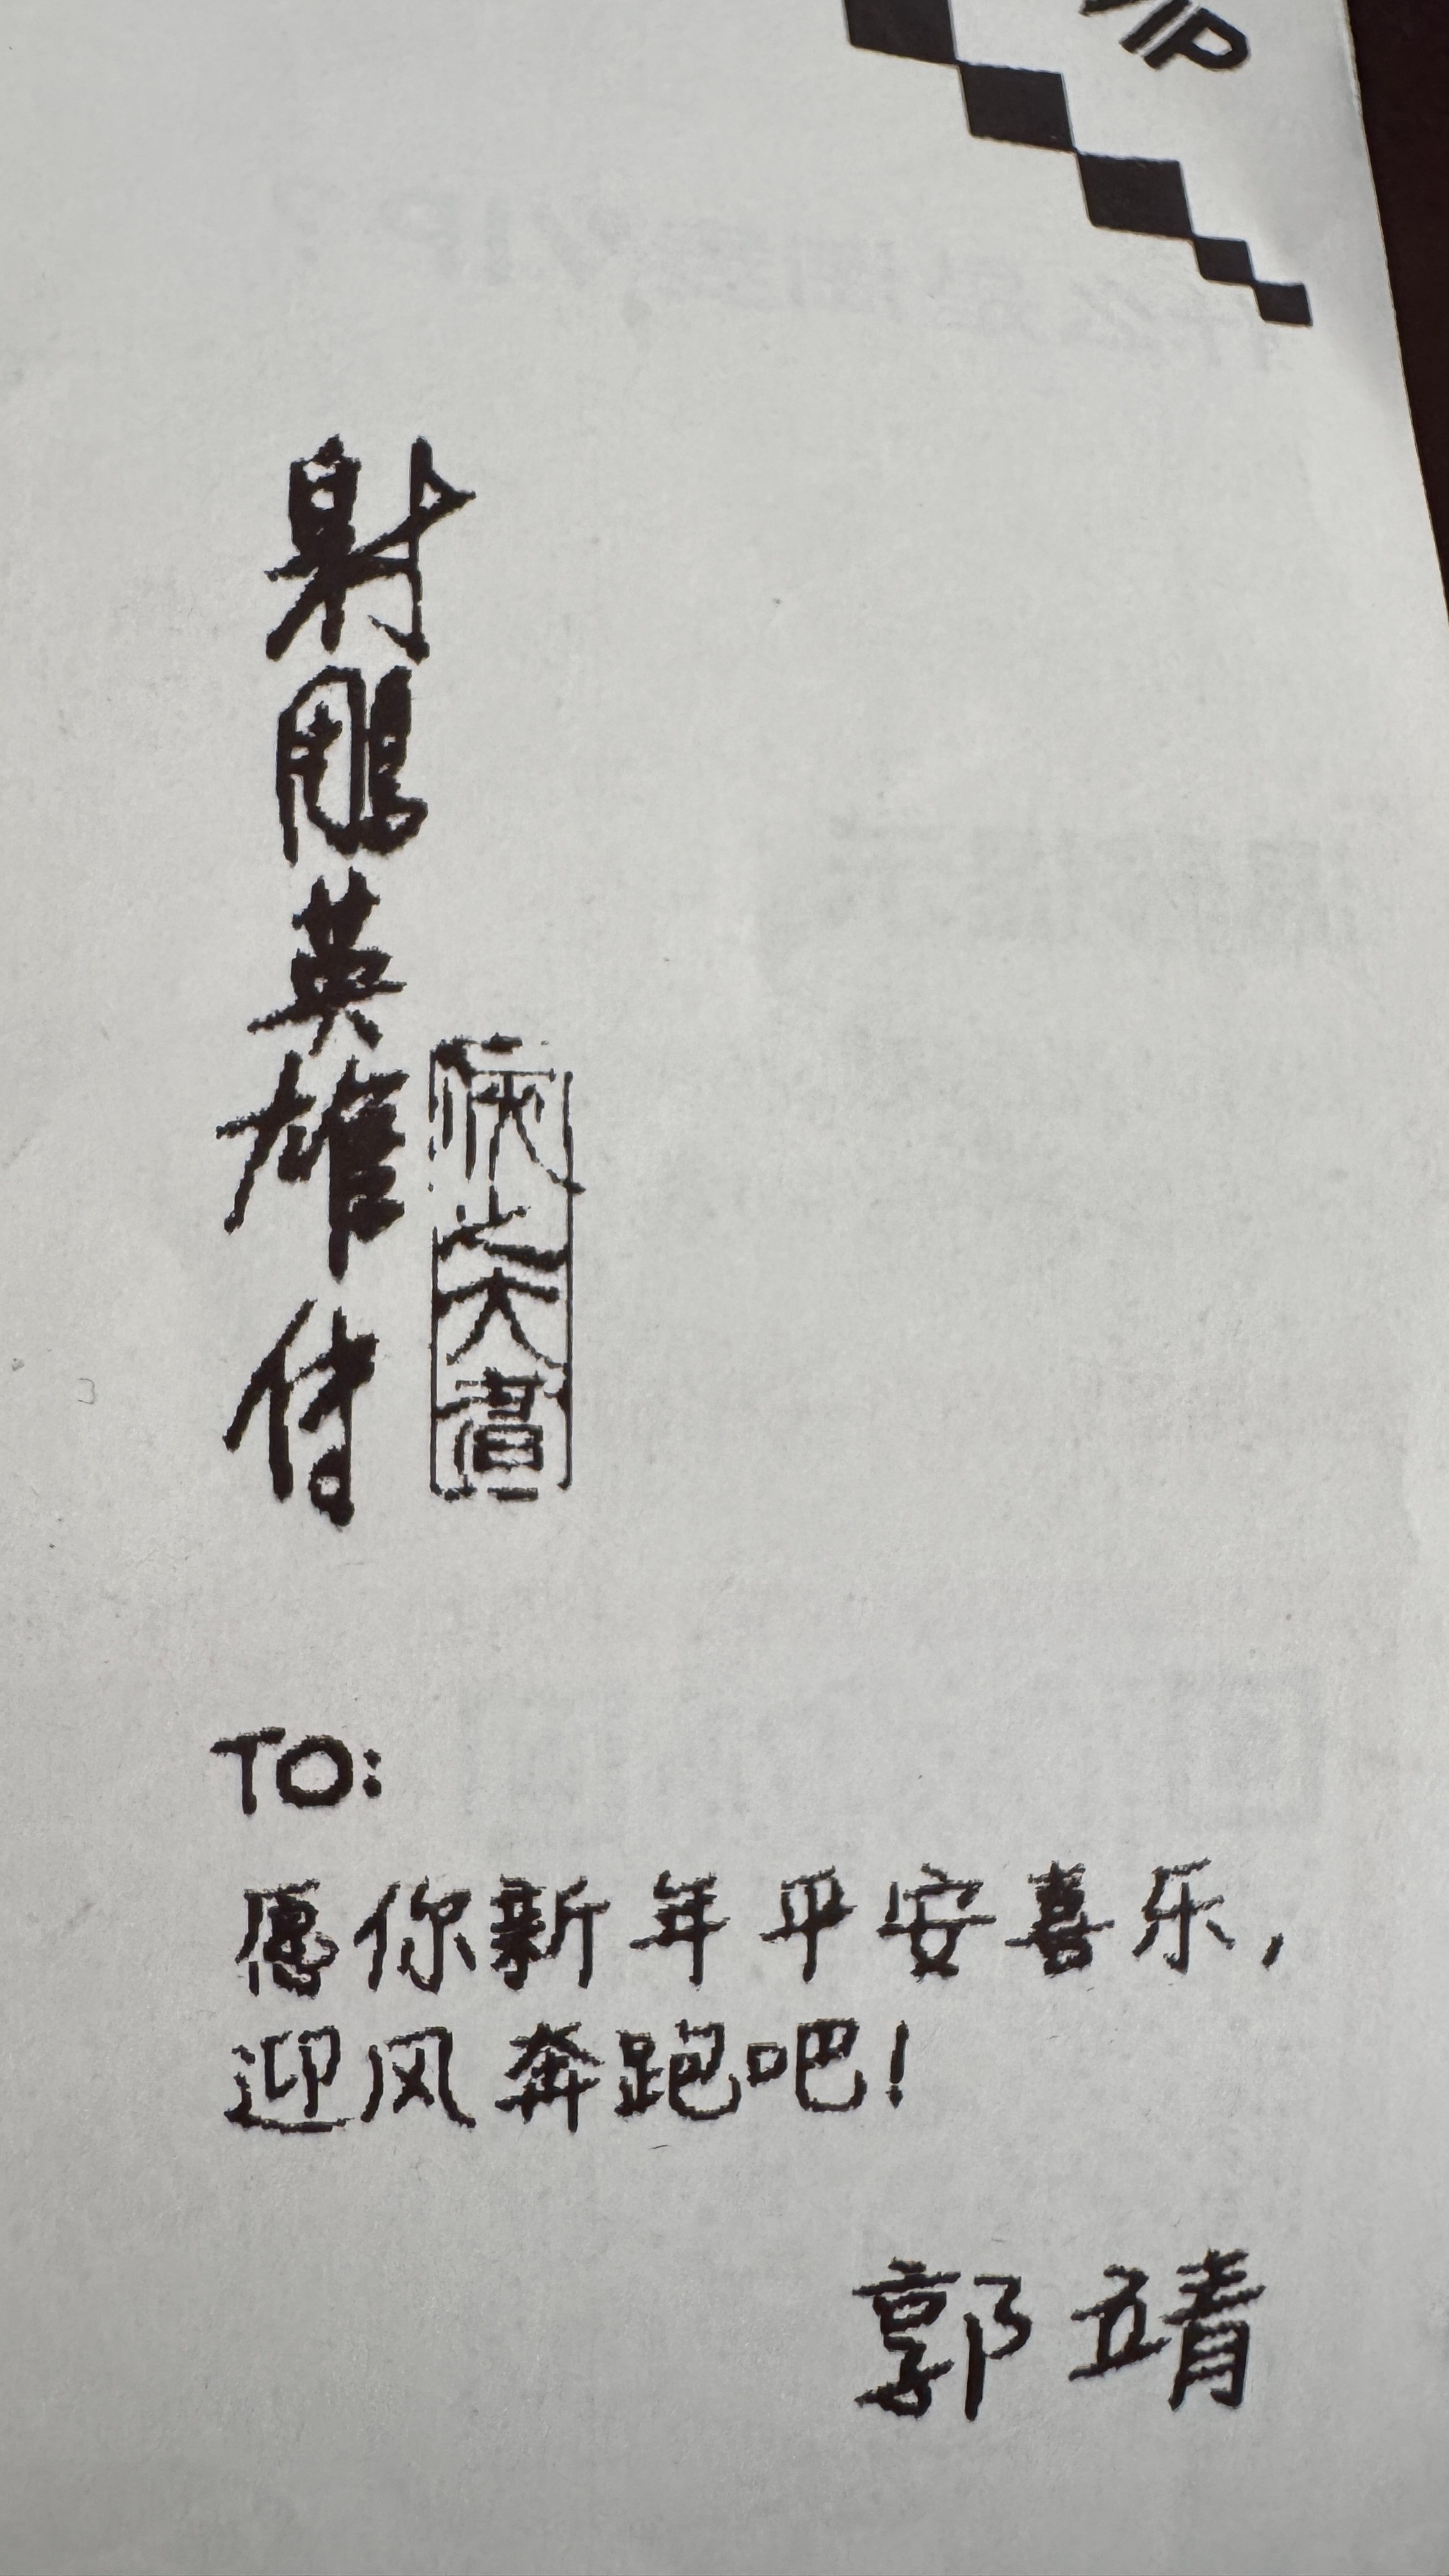 VIP
射雕英雄传
侠之大者
TO:
愿你新年平安喜乐,
迎风奔跑吧!
郭靖